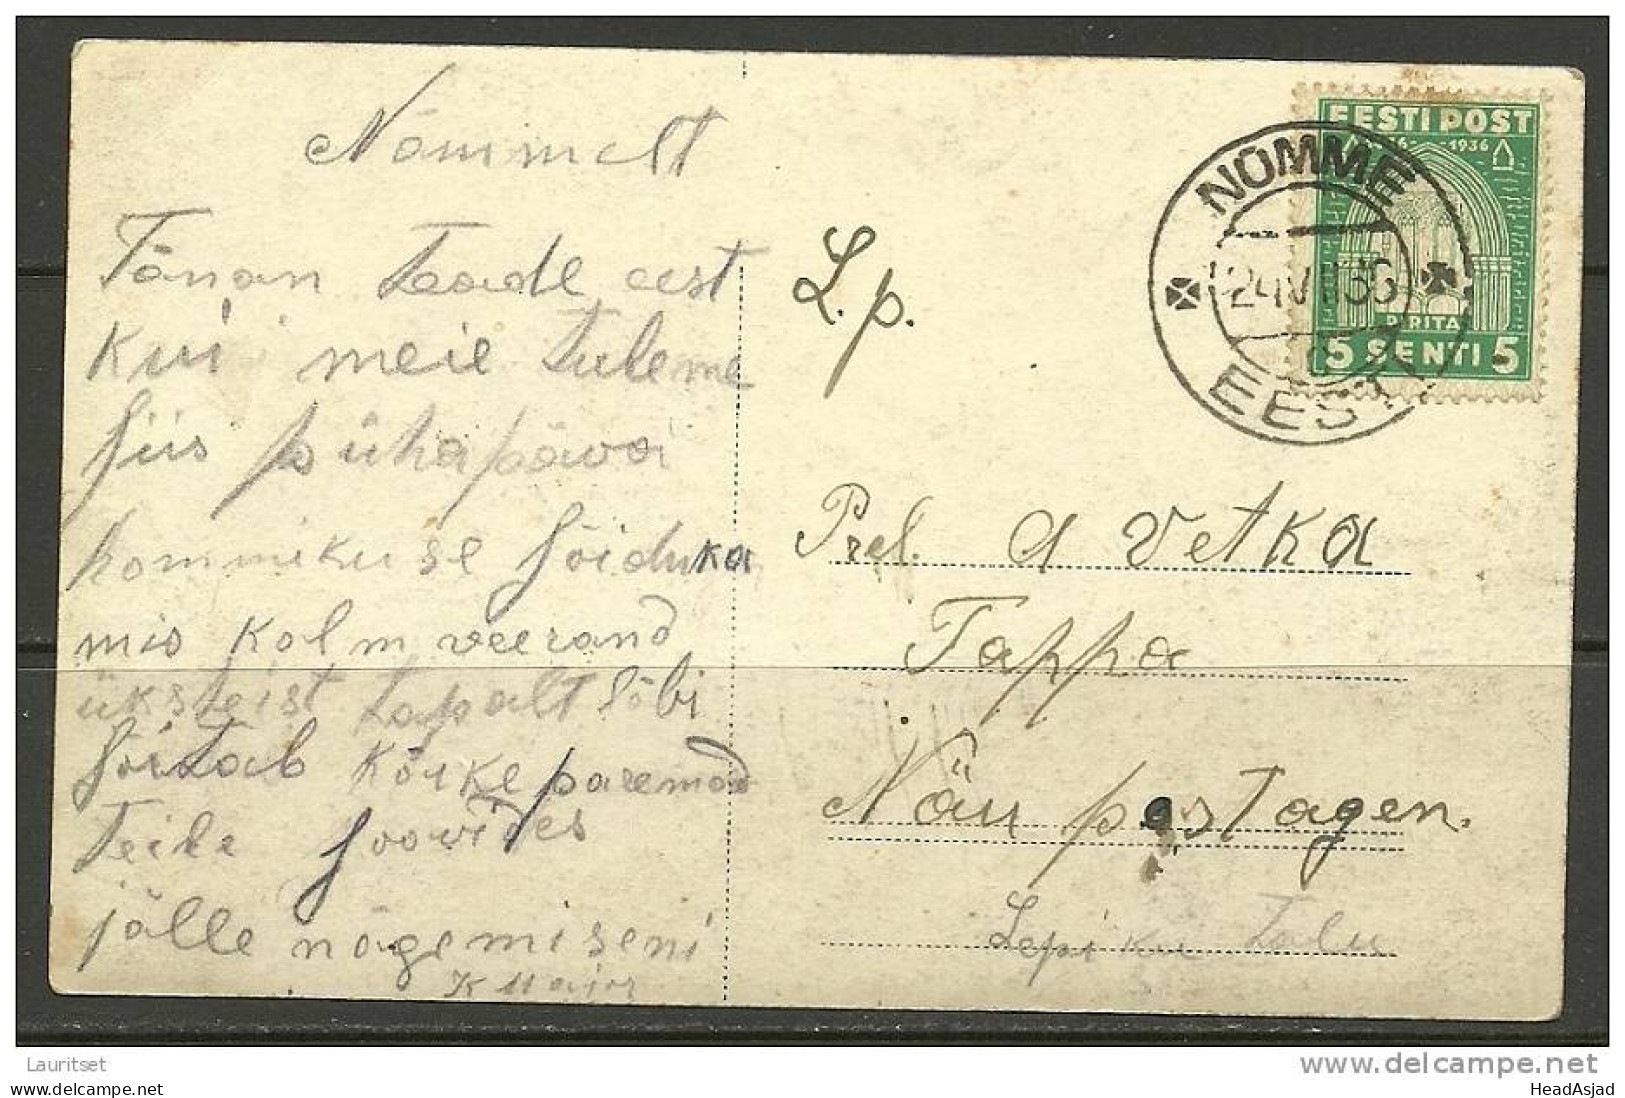 Nõmmelt
Tänan teade eest
Kui meie tuleme
siis pühapäva
hommikuse sõiduka
mis kolm veerand
üksteist tapalt läbi
sõitab kõike paremad
Teile soovides
jälle nägemiseni
K Major
L. p.
Prel. A Vetka
Tappa
Näu postagen.
Lepiku talu
EESTI POST
1936
PIRITA
5 SENTI 5
NÕMME
24 VII 36
EESTI
Lauritset
www.delcampe.net
HeadAsjad